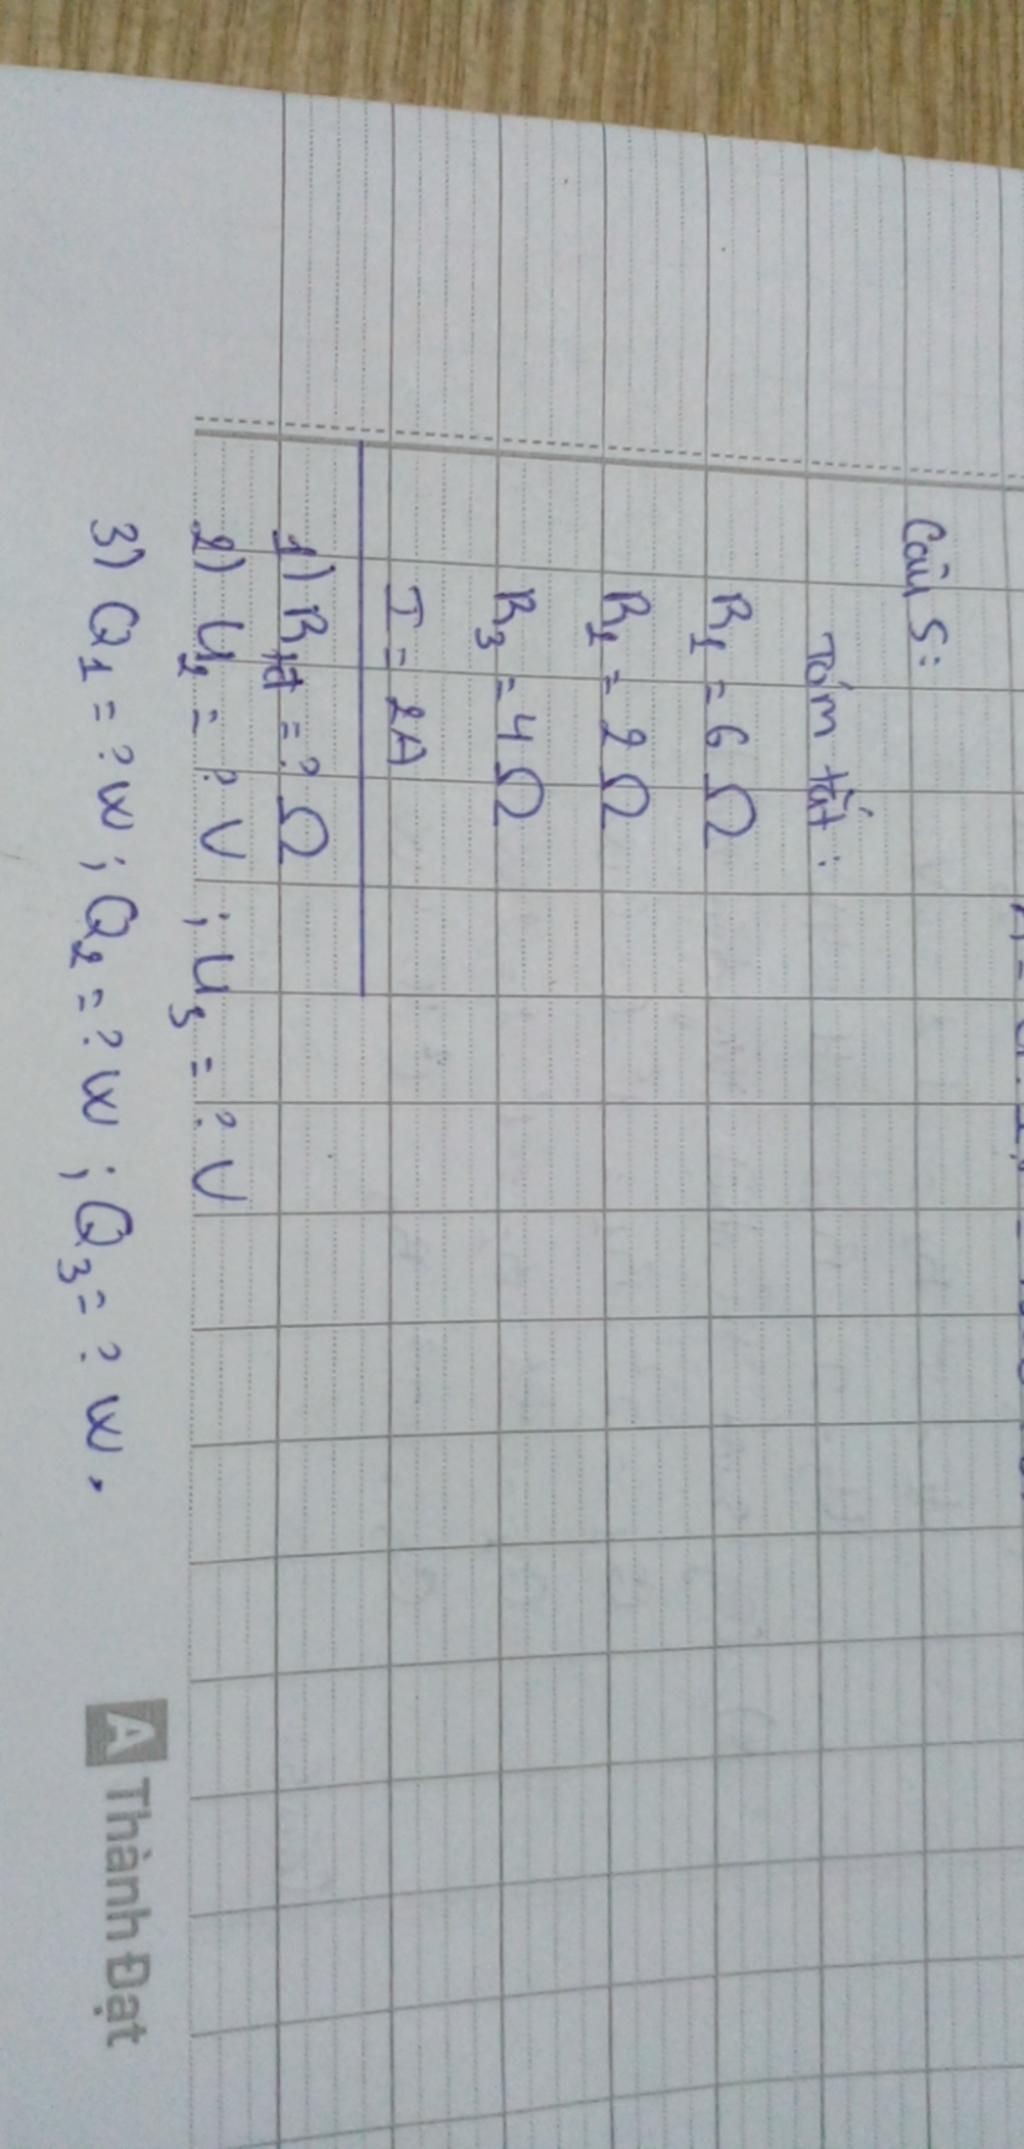 Câu 5:
Tóm tắt:
R1 = 6 Ω
R2 = 2 Ω
R3 = 4 Ω
I = 2A
1) Rtđ = ? Ω
2) U2 = ? V ; U3 = ? V
3) Q1 = ? W ; Q2 = ? W ; Q3 = ? W.
A Thành Đạt